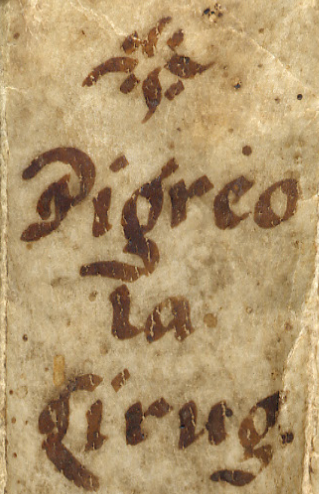 Digreo
la
Cirug.